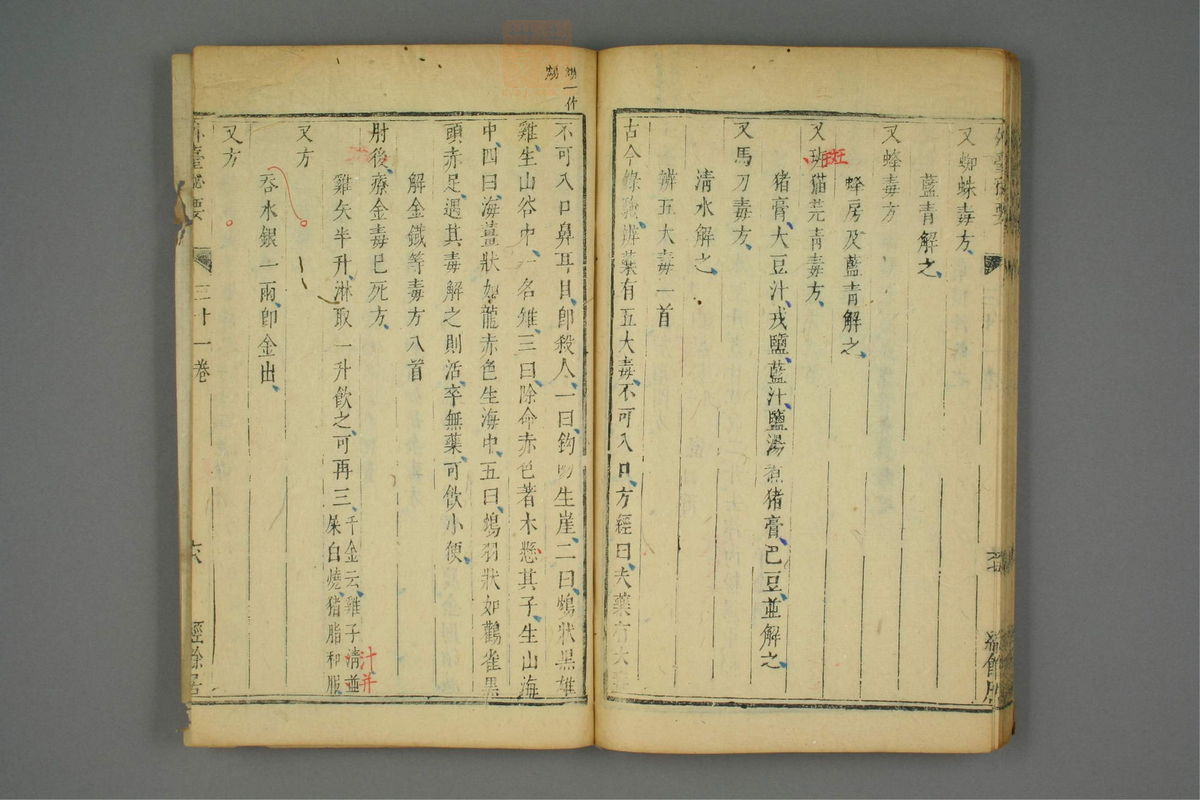 又蜘蛛毒方
藍青解之
又蜂毒方
蜂房及藍青解之
又斑猫芫青毒方
猪膏大豆汁戎鹽藍汁鹽湯煮猪膏巴豆並解之
又馬刀毒方
清水解之
辨五大毒一首
古今錄驗辨藥有五大毒不可入口方經曰夫藥有大
不可入口鼻耳目即殺人一曰鈎吻生崖二曰鴆狀黑雄
雞生山谷中一名雉三曰除命赤色著木懸其子生山海
中四曰海薑狀如龍赤色生海中五曰鴆羽狀如鸛雀黑
頭赤足遇其毒解之則活卒無藥可飲小便
解金鐵等毒方八首
肘後療金毒已死方
雞矢半升淋取一升飲之可再三千金云雞子清並
屎白燒猪脂和服
汁并
又方
吞水銀一兩即金出
又方
外臺秘要
三十一卷
六
經餘居